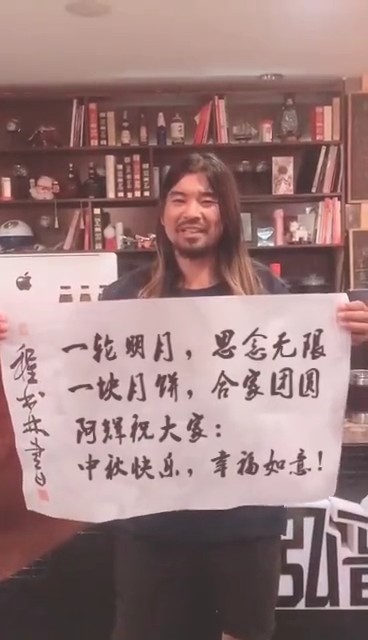 一轮明月，思念无限
一块月饼，合家团圆
阿辉祝大家：
中秋快乐，幸福如意！